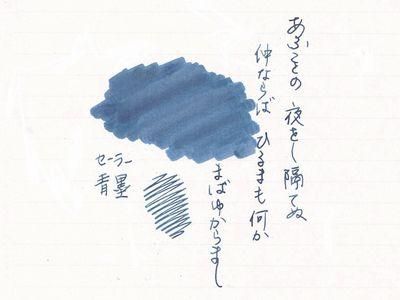 あふことの 夜をし隔てぬ
仲ならば ひるまも何か
まばゆからまし
セーラー
青墨